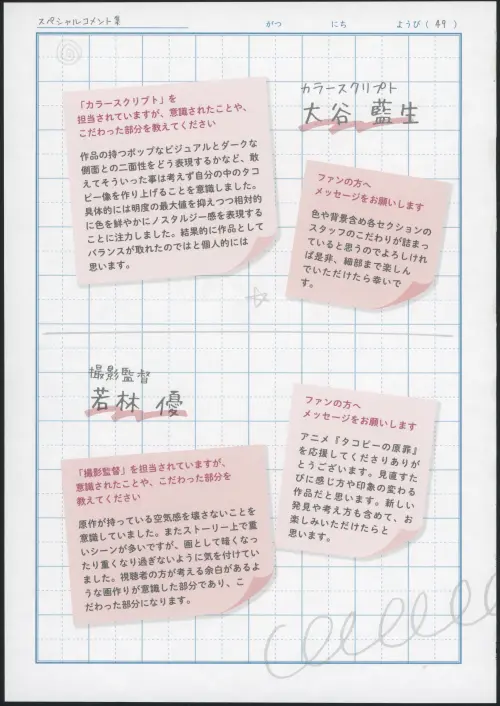 スペシャルコメント集
がつ にち ようび(49)
カラースクリプト
大谷 藍生
「カラースクリプト」を
担当されていますが、意識されたことや、
こだわった部分を教えてください
作品の持つポップなビジュアルとダークな
側面との二面性をどう表現するかなど、敢
えてそういった事は考えず自分の中のタコ
ピー像を作り上げることを意識しました。
具体的には明度の最大値を抑えつつ相対的
に色を鮮やかにノスタルジー感を表現する
ことに注力しました。結果的に作品として
バランスが取れたのではと個人的には
思います。
ファンの方へ
メッセージをお願いします
色や背景含め各セクションの
スタッフのこだわりが詰まっ
ていると思うのでよろしけれ
ば是非、細部まで楽しん
でいただけたら幸いで
す。
撮影監督
若林 優
「撮影監督」を担当されていますが、
意識されたことや、こだわった部分を
教えてください
原作が持っている空気感を壊さないことを
意識していました。またストーリー上で重
いシーンが多いですが、画として暗くなっ
たり重くなり過ぎないように気を付けてい
ました。視聴者の方が考える余白があるよ
うな画作りが意識した部分であり、こ
だわった部分になります。
ファンの方へ
メッセージをお願いします
アニメ『タコピーの原罪』
を応援してくださりありが
とうございます。見直すた
びに感じ方や印象の変わる
作品だと思います。新しい
発見や考え方も含めて、お
楽しみいただけたらと
思います。